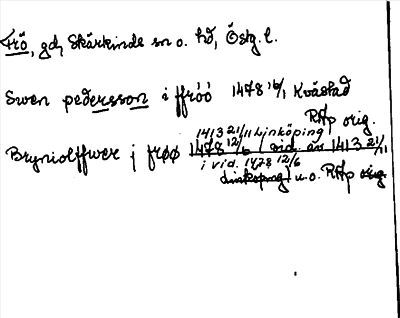 Frö, gd, Skärkinds sn o. hd, Östg. l.
Swen pedersson i ffróó 1478 16/1 Kvästad
RAp orig.
1413 21/11 Linköping
Bryniolffwer j frøø 1478 12/6 (vid. av 1413 21/11
i vid. 1478 12/6
Linköping) u.o. RAp orig.